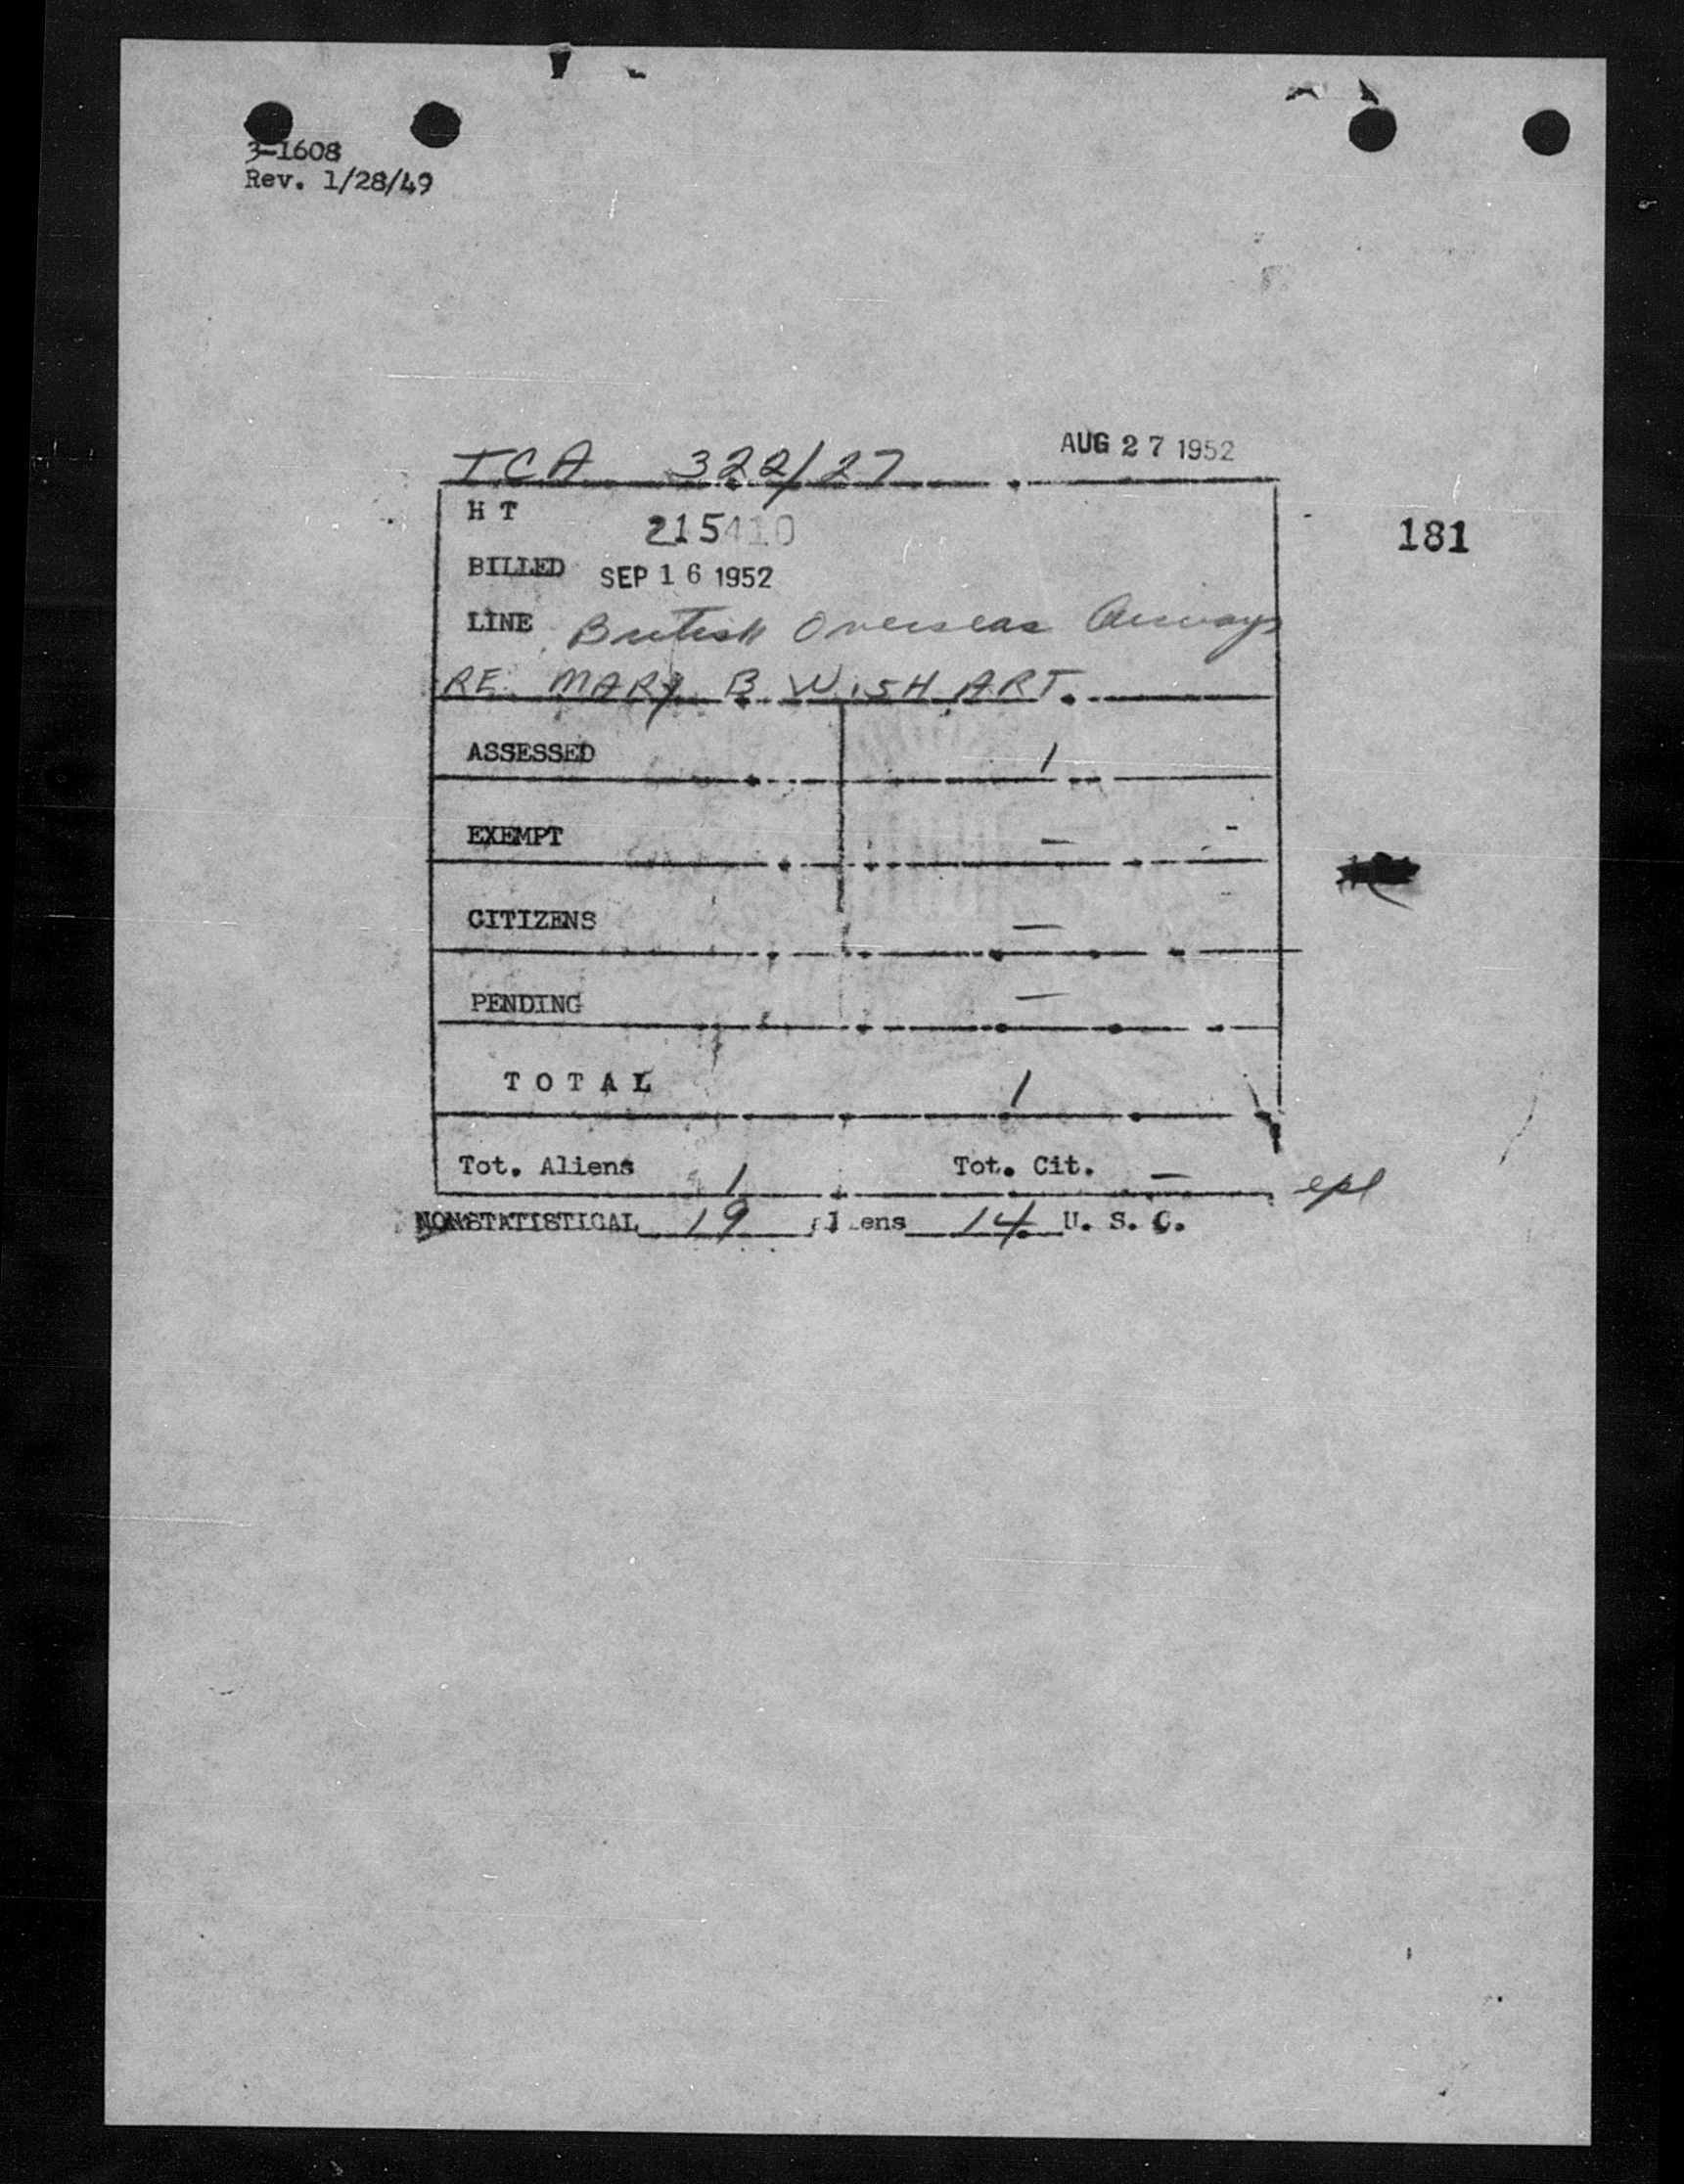 3-1608
Rev. 1/28/49
TCA 322/27 AUG 27 1952
H T 215410
181
BILLED SEP 16 1952
LINE British Overseas Airways
RE MARY B WISHART.
ASSESSED 1
EXEMPT —
CITIZENS —
PENDING —
TOTAL 1
Tot. Aliens 1 Tot. Cit. —
epl
NONSTATISTICAL 19 aliens 14 U. S. C.